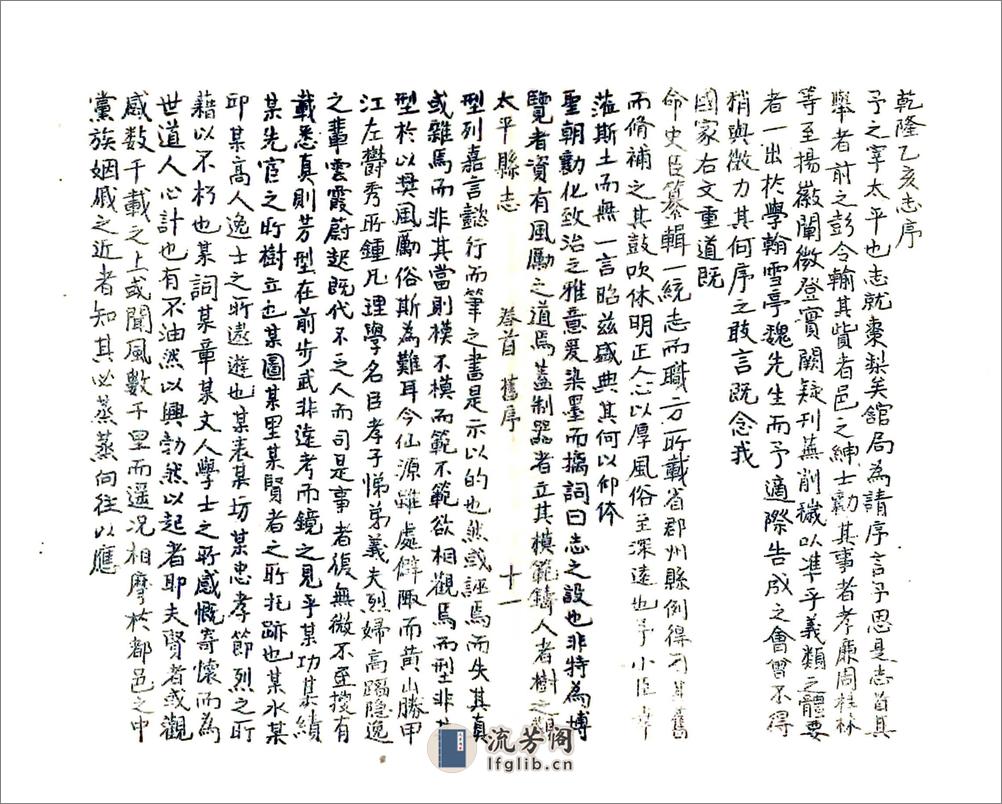 乾隆乙亥志序
予之宰太平也志就棗梨矣舘局為請序言予思是志首其
舉者前之彭令輸其貲者邑之紳士勷其事者孝廉周桂林
等至揚徽闡微登實闕疑刊蕪削穢以準乎義類之體要
者一出於學翰雪亭魏先生而予適際告成之會曾不得
稍與微力其何序之敢言既念我
國家右文重道既
命史臣纂輯一統志而職方所載省郡州縣例得
而脩補之其鼓吹休明正人心以厚風俗至深遠也予小臣
蒞斯土而無一言昭兹盛典其何以仰体
聖朝勷化致治之雅意爰染墨而摛詞曰志之設也非特為博
覽者資有風勵之道焉盖制器者立其模範鑄人者樹之
太平縣志 卷首 舊序 十一
型列嘉言懿行而筆之書是示以的也然或誣焉而失其真
或雜焉而非其當則模不模而範不範欲相觀焉而型非
型於以奬風勵俗斯為難耳今仙源雖處僻陬而黄山勝甲
江左欝秀所鍾凡理學名臣孝子悌弟義夫烈婦高蹈隐逸
之輩雲霞蔚起既代不乏人而司是事者復無微不至搜有
載悉真則芳型在前步武非遠考而鏡之見乎某功某績
某先宦之所樹立也某圖某里某賢者之所托跡也某水某
邱某高人逸士之所遠遊也某表某坊某忠孝節烈之所
藉以不朽也某詞某章某文人學士之所感慨寄懷而為
世道人心計也有不油然以興勃然以起者耶夫賢者或觀
感数千載之上或聞風數千里而遥况相摩於都邑之中
黨族姻戚之近者知其必蒸蒸向往以應
流芳阁
lfglib.cn